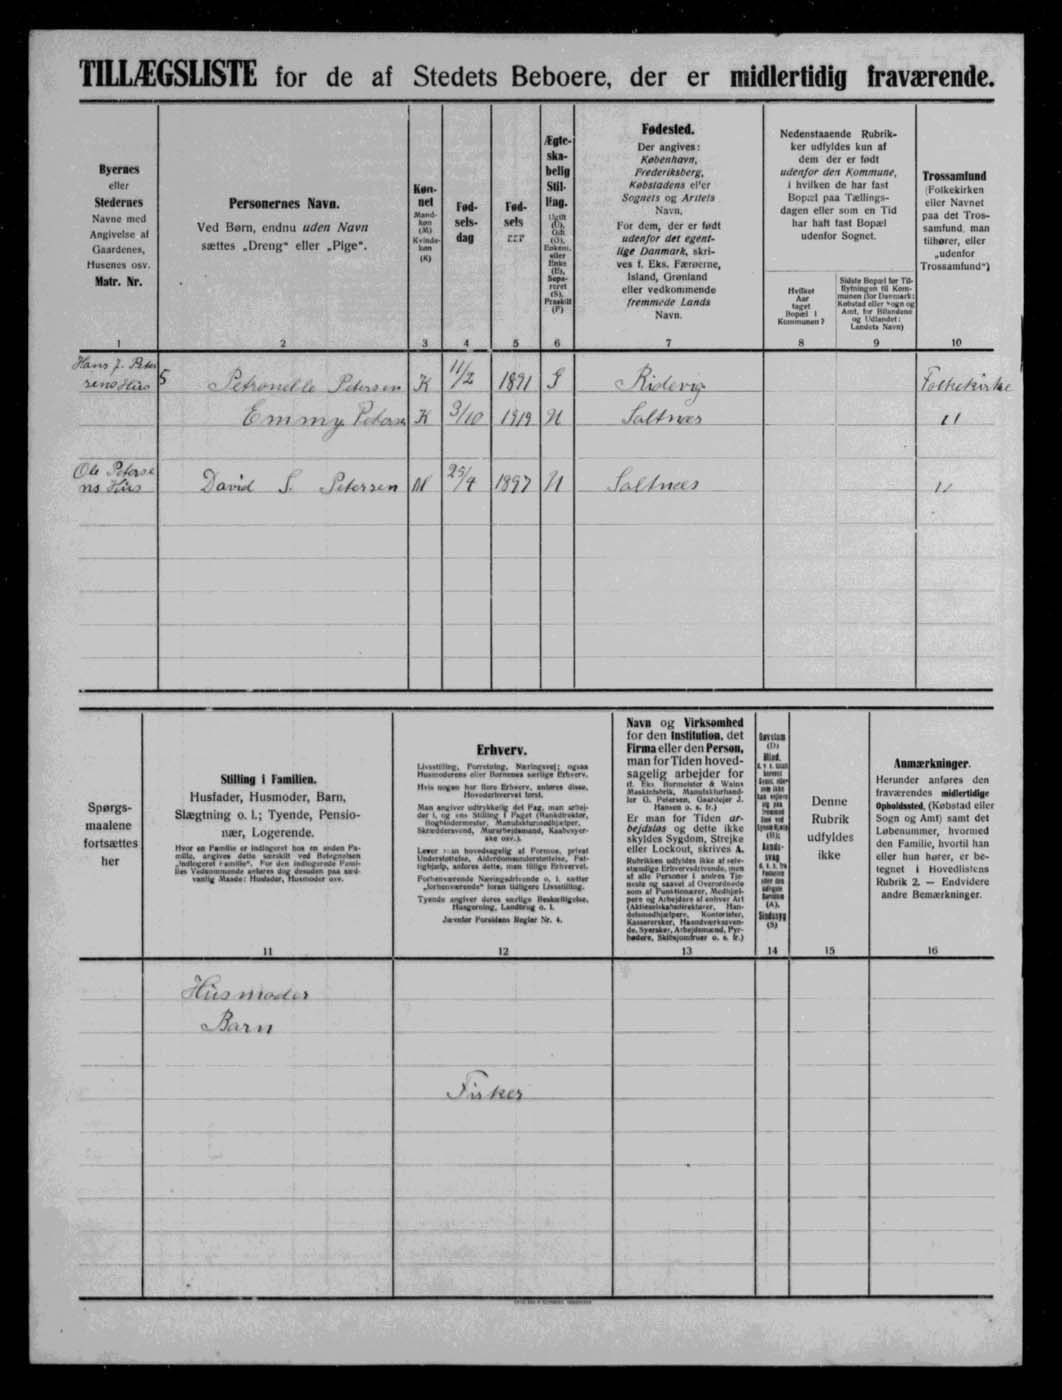 TILLÆGSLISTE for de af Stedets Beboere, der er midlertidig fraværende.
Byernes
eller
Stedernes
Navne med
Angivelse af
Gaardenes,
Husenes osv.
Matr. Nr.
Personernes Navn.
Ved Børn, endnu uden Navn
sættes „Dreng“ eller „Pige“.
Køn-
net
Mand-
køn
(M)
Kvinde-
køn
(K)
Fød-
sels-
dag
Fød-
sels
Ægte-
ska-
belig
Stil-
ling.
Ugift
(U),
Gift
(G),
Enkem.
eller
Enke
(E),
Sepa-
reret
(S),
Fraskilt
(F)
Fødested.
Der angives:
København,
Frederiksberg,
Købstadens eller
Sognets og Amtets
Navn.
For dem, der er født
udenfor det egent-
lige Danmark, skri-
ves f. Eks. Færøerne,
Island, Grønland
eller vedkommende
fremmede Lands
Navn.
Nedenstaaende Rubrik-
ker udfyldes kun af
dem der er født
udenfor den Kommune,
i hvilken de har fast
Bopæl paa Tællings-
dagen eller som en Tid
har haft fast Bopæl
udenfor Sognet.
Hvilket
Aar
taget
Bopæl i
Kommunen?
Sidste Bopæl før Til-
flytningen til Kom-
munen (for Danmark:
Købstad eller Sogn og
Amt, for Bilandene
og Udlandet:
Landets Navn)
Trossamfund
(Folkekirken
eller Navnet
paa det Tros-
samfund, man
tilhører, eller
„udenfor
Trossamfund“)
1 2 3 4 5 6 7 8 9 10
Hans J. Peter
sens Hús 5 Petronelle Petersen K 11/2 1891 G Ridevig Folkekirke
Emmy Petersen K 3/10 1919 U Saltnes "
Ole Peterse
ns Hús David S. Petersen M 29/4 1897 U Saltnes "
Spørgs-
maalene
fortsættes
her
Stilling i Familien.
Husfader, Husmoder, Barn,
Slægtning o. l.; Tyende, Pensio-
nær, Logerende.
Hvor en Familie er indlogeret hos en anden Fa-
milie, angives dette særskilt ved Betegnelsen
„indlogeret Familie“. For den indlogerede Fami-
lies Vedkommende anføres dog desuden paa sæd-
vanlig Maade: Husfader, Husmoder osv.
Erhverv.
Livsstilling, Forretning, Næringsvej; ogsaa
Husmoderens eller Børnenes særlige Erhverv.
Hvis nogen har flere Erhverv, anføres disse,
Hovederhvervet først.
Man angiver udtrykkelig det Fag, man arbej-
der i, og ens Stilling i Faget (Bankdirektør,
Bogbindermester, Manufakturmedhjælper,
Skræddersvend, Murarbejdsmand, Kaabesyer-
ske osv.).
Lever man hovedsagelig af Formue, privat
Understøttelse, Alderdomsunderstøttelse, Fat-
tighjælp, anføres dette, men tillige Erhvervet.
Forhenværende Næringsdrivende o. l. sætter
„forhenværende“ foran tidligere Livsstilling.
Tyende angiver deres særlige Beskæftigelse,
Husgerning, Landbrug o. l.
Jævnfør Forsidens Regler Nr. 4.
Navn og Virksomhed
for den Institution, det
Firma eller den Person,
man for Tiden hoved-
sagelig arbejder for
(f. Eks. Burmeister & Wains
Maskinfabrik, Manufakturhand-
ler G. Petersen, Gaardejer J.
Hansen o. s. fr.)
Er man for Tiden ar-
bejdsløs og dette ikke
skyldes Sygdom, Strejke
eller Lockout, skrives A.
Rubrikken udfyldes ikke af selv-
stændige Erhvervsdrivende, men
af alle Personer i andres Tje-
neste og saavel af Overordnede
som af Funktionærer, Medhjæl-
pere og Arbejdere af enhver Art
(Aktieselskabsdirektører, Han-
delsmedhjælpere, Kontorister,
Kasserersker, Haandværkssven-
de, Syersker, Arbejdsmænd, Fyr-
bødere, Skibsjomfruer o. s. fr.)
Døvstum
(D)
Blind,
(B);
Aands-
svag
(A),
Sindssyg
(S)
Denne
Rubrik
udfyldes
ikke
Anmærkninger.
Herunder anføres den
fraværendes midlertidige
Opholdssted, (Købstad eller
Sogn og Amt) samt det
Løbenummer, hvormed
den Familie, hvortil han
eller hun hører, er be-
tegnet i Hovedlistens
Rubrik 2. — Endvidere
andre Bemærkninger.
11 12 13 14 15 16
Húsmoder
Barn
Fisker